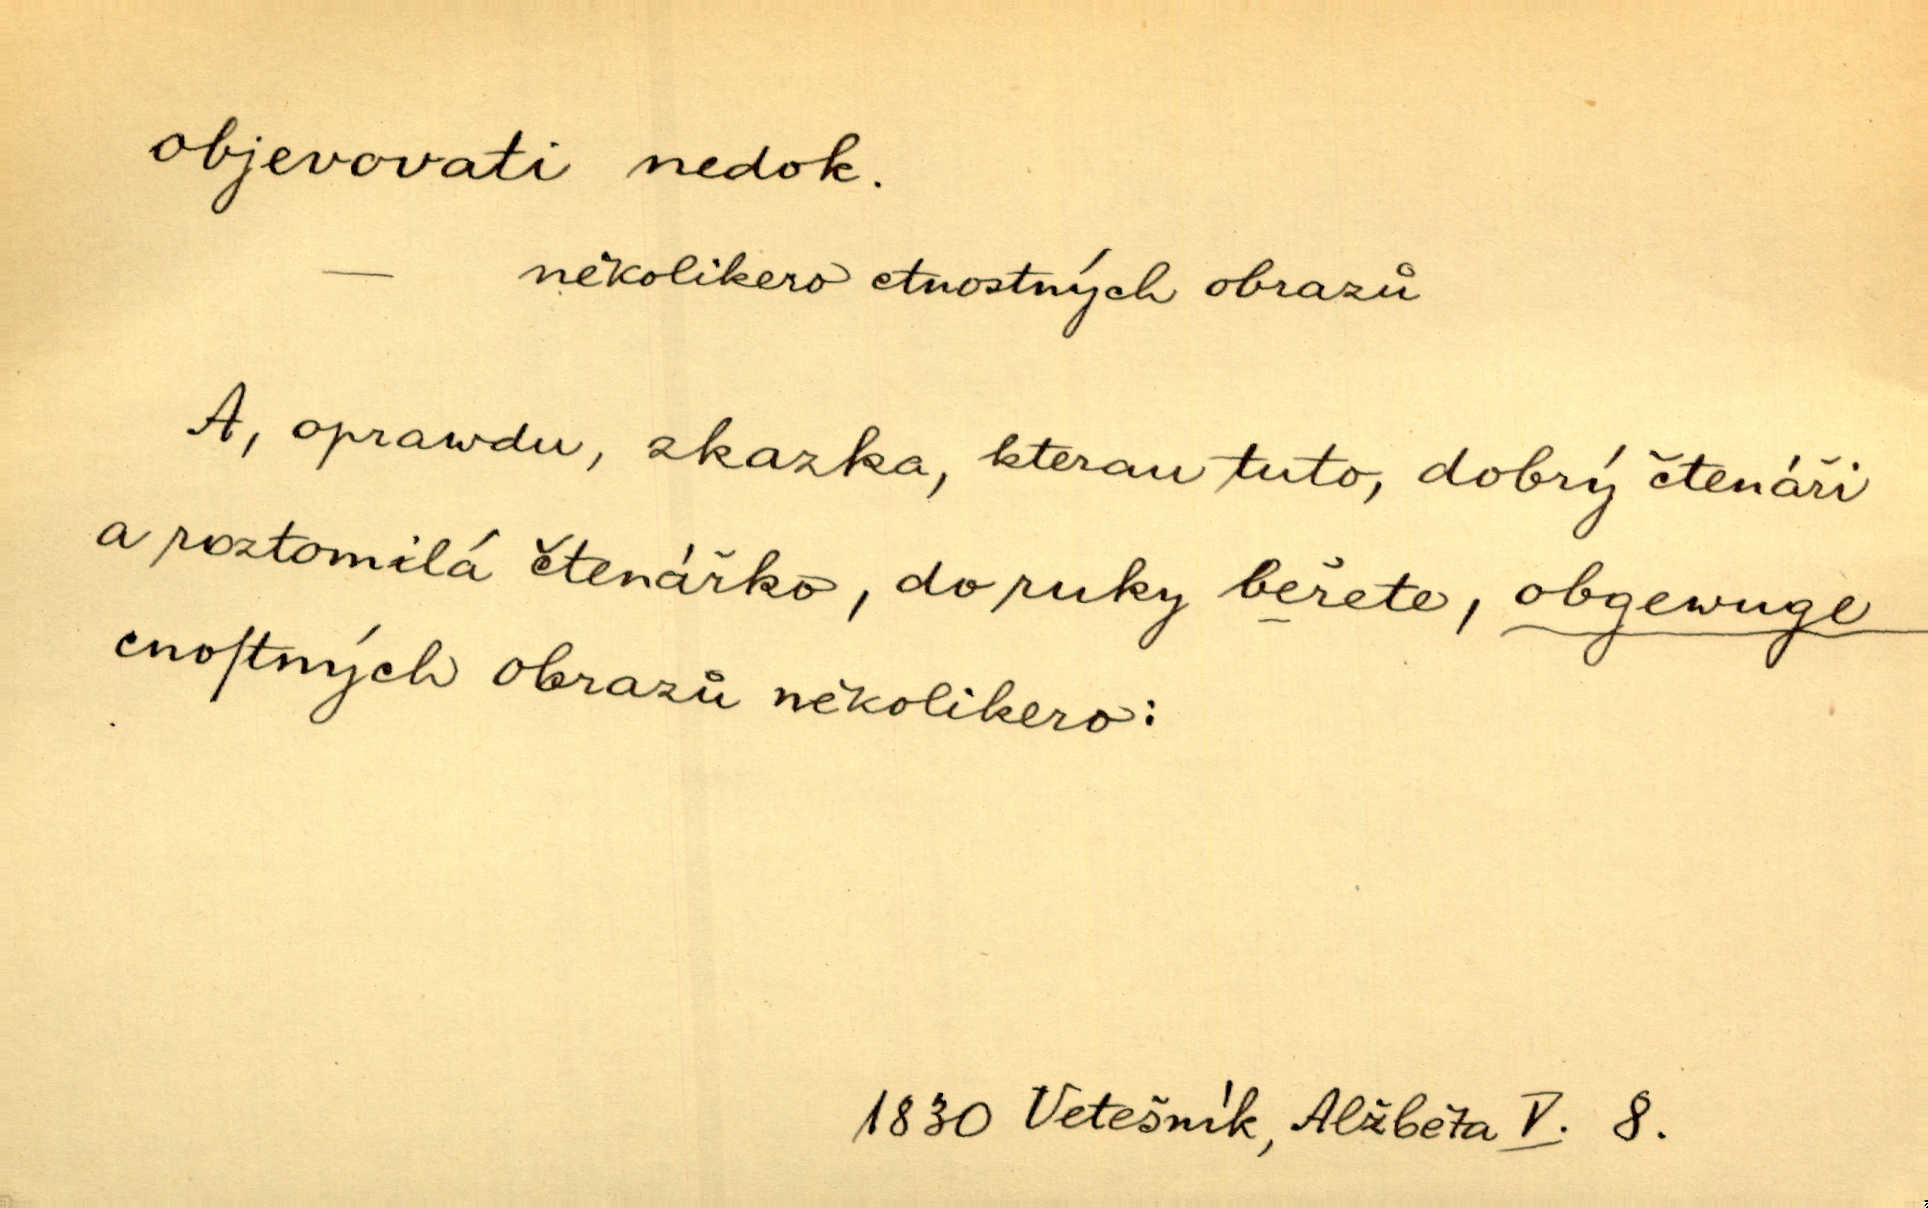 objevovati nedok.
— několikero ctnostných obrazů
A, oprawdu, zkazka, kterau tuto, dobrý čtenáři
a roztomilá čtenářko, do ruky běřete, obgewuge
cnoſtných obrazů několikero:
1830 Vetešník, Alžběta V. 8.